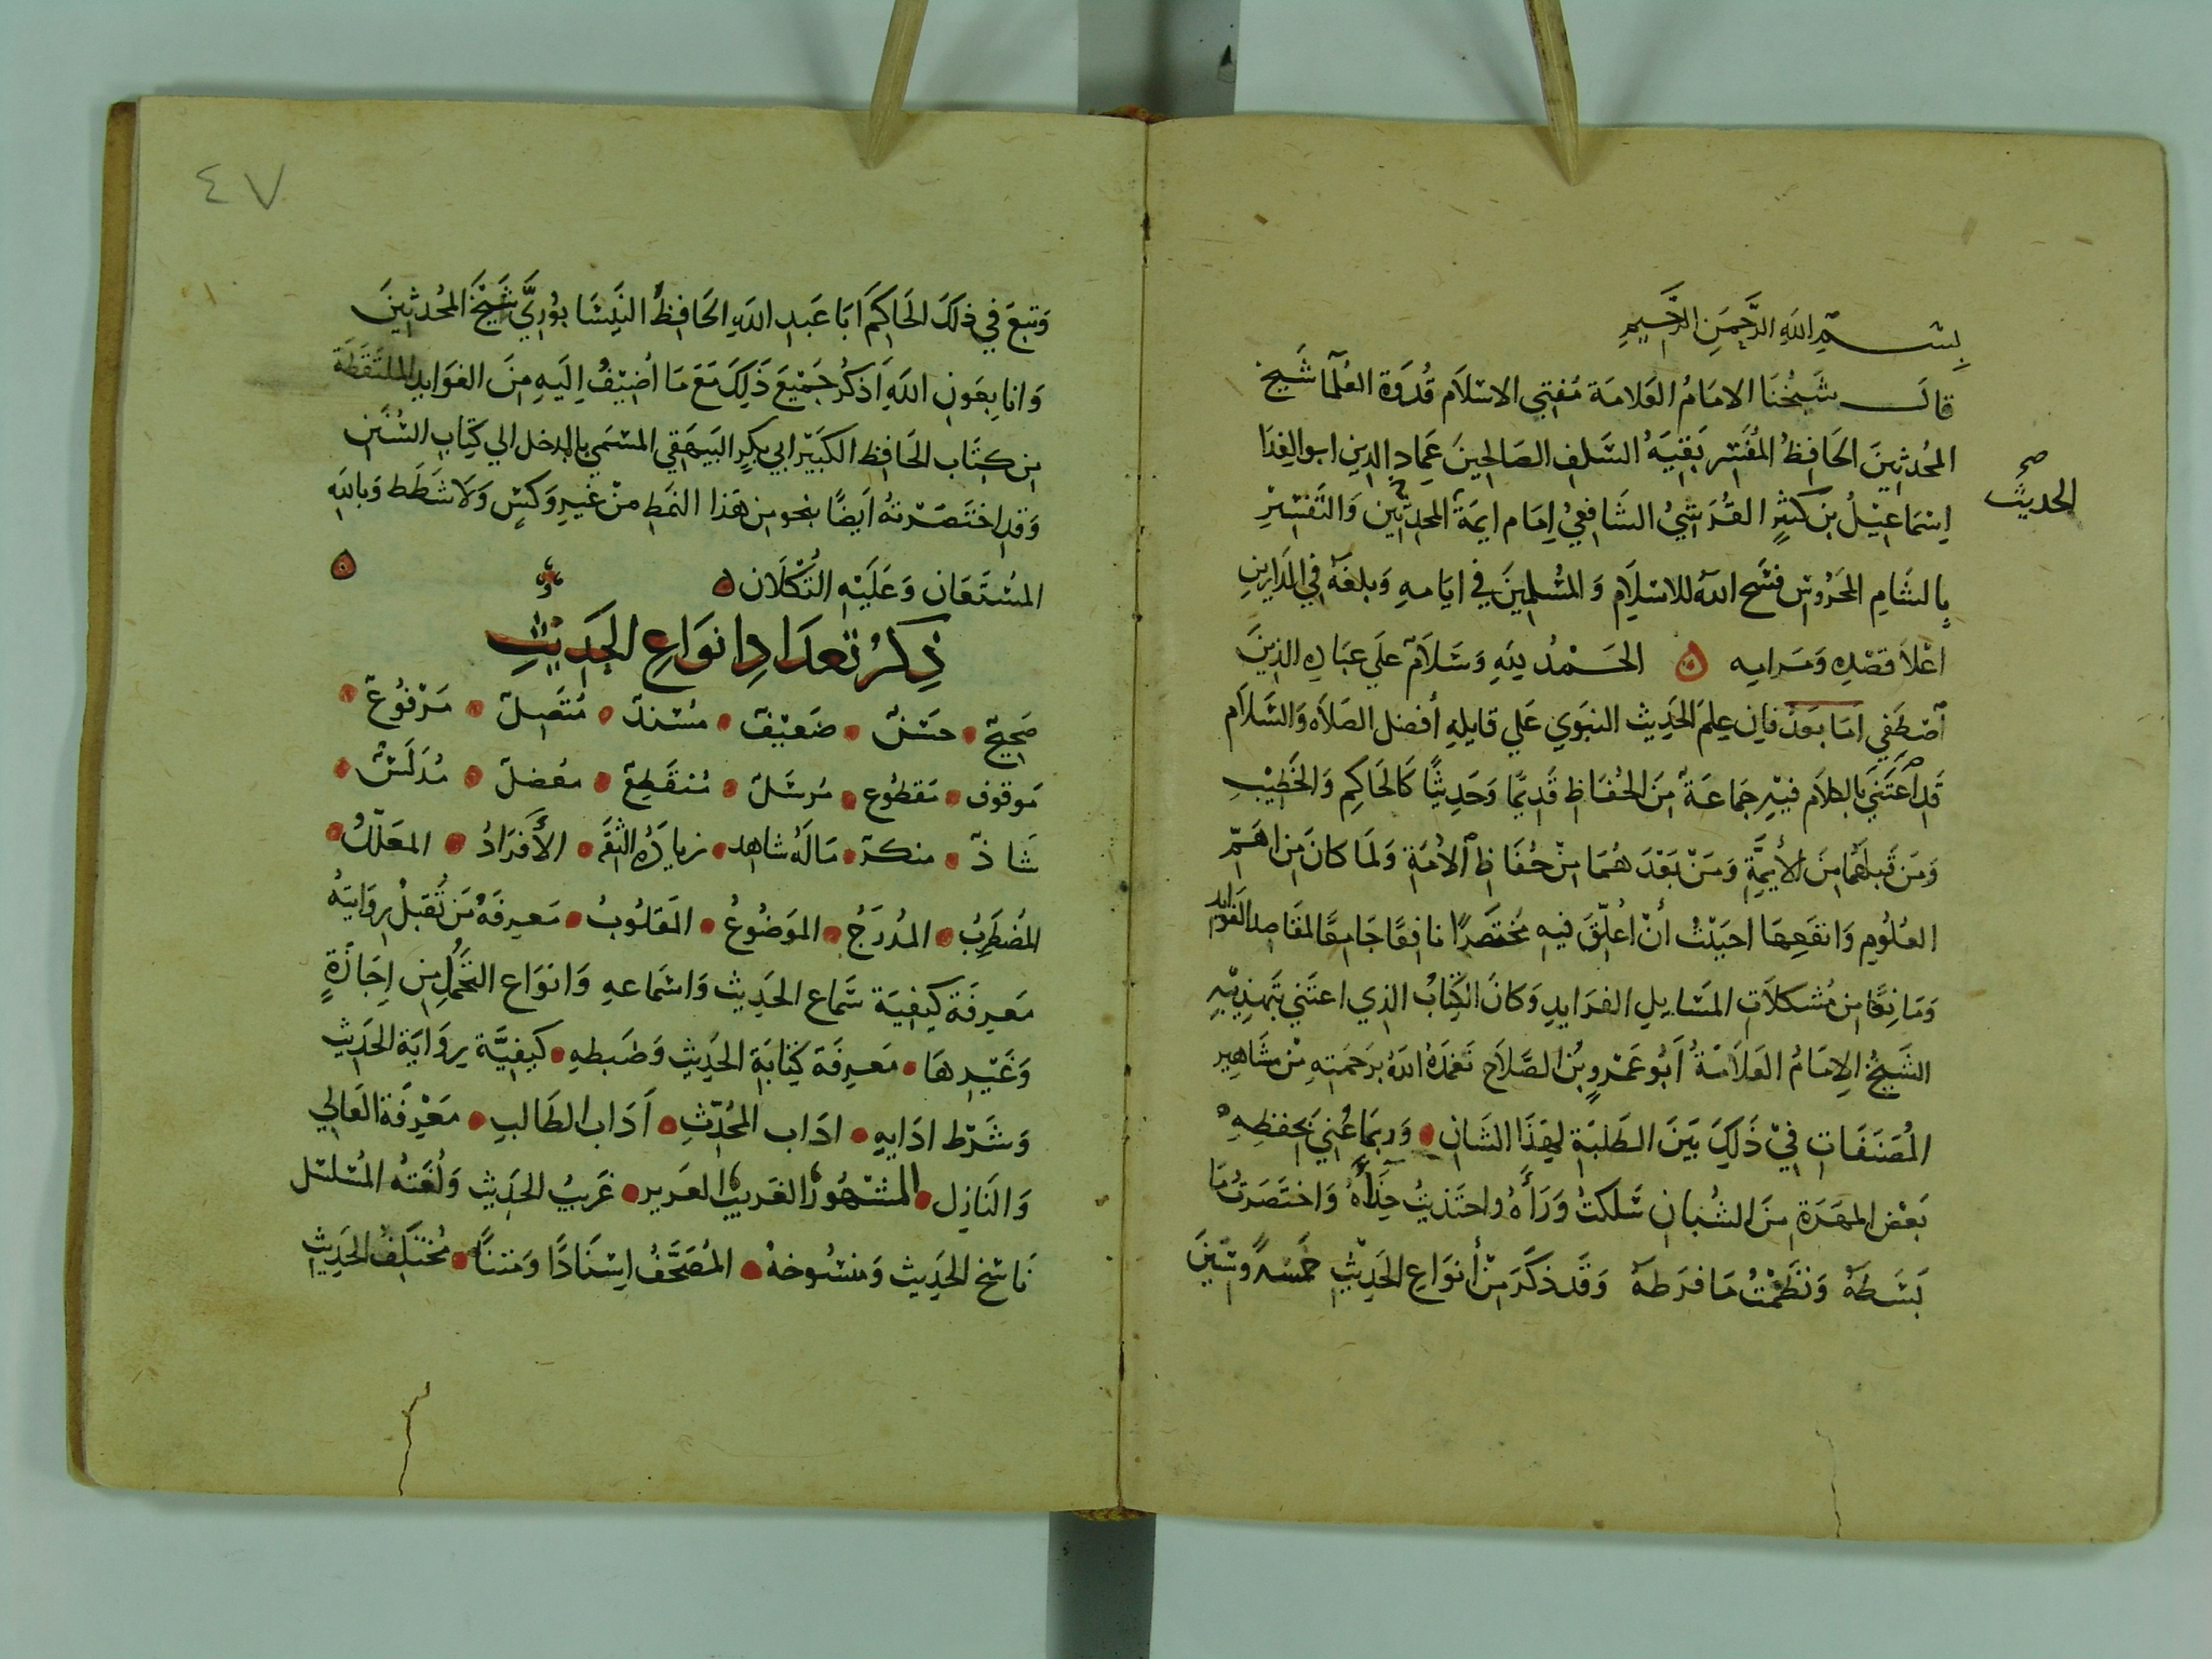 بِسْــــمِ اللهِ الرَّحْمَنِ الرَّحِيمِ
قالـــــ شَيخُنَا الامَامُ العَلامَة مُفتِي الاسْلَام قُدوَة العُلمآ شَيخ
المُحدثِينَ الحَافِظُ المُفَسِّر بَقيَةُ السَّلف الصَالحِينَ عَمِادِ الدِين ابو الفِدَا
الحديث صح
اِسْمَاعِيْلُ بن كَثِيْرٍ القُرَشِيُ الشَافعِيُ اِمَام ايمَة المحدثين وَالتَفْسِيْرِ
بِالشَامِ المَحرُوسْ فسَح اللهُ للاسْلَامِ وَالمُسْلِمِينَ في ايَامهِ وَبلغَهُ في الدَارينِ
اَعْلَا قَصْدِه وَمَرامِه ۞ الحَــمْدُ لِلهِ وَسَلاَمٌ عَلَي عِبَادِه الذِينَ
اصْطَفِي اَمَا بَعدُ فَاِن عِلمَ الحَدِيث النبَوي عَلي قايلِهِ أفضل الصَلاَه وَالسَّلاَم
قَد اعتَنَي بالكلاَم فيْهِ جَمَاعَةٌ مِنَ الحُفَاظِ قَدِيمًا وَحَدِيثًا كَالحَاكِم وَالخَطِيْبِ
وَمَن قَبلَهُمَا مِنَ الأَيمَّةِ وَمَنْ بَعْدَ هُمَا مِنْ حُفَاظِ الاُمَةِ وَلَما كانَ مِن اهَمِّ
العُلُومِ وَانفَعِهَا احبَبْتُ أنْ اُعَلِّقَ فيهِ مُختَصَرًا نافِعًا جَامِعًا لمقَاصِد الفَوَايد
وَمَانِعًا مِن مُشكلَات المَسَايل الفرَايدِ وَكانَ الكِتَابُ الذِي اعتَنَي بتَهذِيْبِهِ
الشَيخُ الاِمَامُ العَلاَمَةُ أَبُو عَمْرٍو بْنُ الصَّلَاح تَغمَدَهُ اللهُ بَرحَمَتهِ مْن مشَاهِير
المُصَنَفَاتِ فيْ ذَلِكَ بَيَنَ الطَلبَةِ لِهَذَا الشَان • وَربمَا عُنِي بحِفظِهِ
بَعْض المهَرَة مِنَ الشُبَان سَلَكتُ وَرَأَهُ واحتَذيتُ حِذَأَهُ وَاختَصَرتُ مَا
بَسَطَهُ وَنَظَمْتُ مَا فرَطهُ وَقَد ذكَرَ مِنْ أنوَاعِ الحَدِيْثِ خَمسَةً وسِتينَ
٤٧
وَتبعَ في ذلكَ الحَاكِمَ ابَا عَبدِ اللهِ الحَافِظَ النَيسَابُوريَّ شَيْخَ المُحدثِينَ
وَانا بِعَونِ اللهِ اَذكُر جَميْعَ ذَلِكَ مَعَ مَا اُضِيْفُ اِلَيهِ مِنَ الفوَايد المُلتَقَطَة
مِن كِتَاب الحَافِظ الكَبيْر ابي بكرٍ البَيهَقي المسَمي بالمدخل الي كِتَاب السُنَن
وَقدِ اختَصَرتهُ اَيضًا بنحو من هَذا النمَط مِنْ غيرِ وَكسٍ وَلاَ شَطَط وَباللهِ
المُستَعَان وَعَلَيْهِ التُكْلَان ۞
ذِكرُ تعدَادِ انوَاعِ الحَدِيثِ
صَحِيحٌ • حسَنٌ • ضَعيْفٌ • مُسْندٌ • مُتَصِلٌ • مَرْفُوعٌ •
مَوقوف • مَقطُوع • مُرسَلٌ • مُنقَطِعٌ • مُعضلٌ • مُدَلَسٌ •
شَاذٌ • منكرٌ • مَا لَهُ شاهِد • زيادَةُ الثِقَه • الأَفرَادُ • المعَلّلُ •
المُضطَرِبُ • المُدرَجُ • الموَضُوعُ • المَقلُوبُ • مَعرِفَةُ مَن تُقبلْ رِوَايتهُ
مَعرِفَة كيْفيَة سَماع الحَدِيث وَاسَماعهِ وَانوَاع التَحَمُّل مِن اِجَازَةٍ
وَغَيْرهَا • مَعرِفَة كِتَابَةِ الحَدِيثِ وَضبطهِ • كيْفيَّة رِوَايَة الحَدِيث
وَشَرْط ادَايهِ • ادَاب المُحَدِّثِ • اَدَاب الطَالبِ • مَعْرِفَة العَالي
وَالنَازِل • المَشْهُورُ الغَريبُ العَزير • غَريبُ الحَدِيث وَلُغَتهُ المُسَلسَل
نَاسْخ الحَدِيث وَمنسُوخهُ • المُصَحَّفُ اِسْنَادًا وَمَتنًا • مُختَلفُ الحَدِيثِ